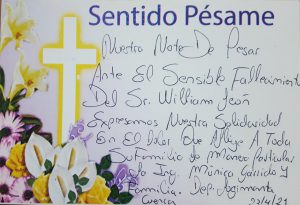 Sentido Pésame
Nuestra Nota De Pesar
Ante El Sensible Fallecimiento
Del Sr. William León
Expresamos Nuestra Solidaridad
En El Dolor Que Aflige A Toda
Su Familia de Manera Particular
Ing. Mónica Garrido y
Familia. Dep.
Cuenca 22/4/21